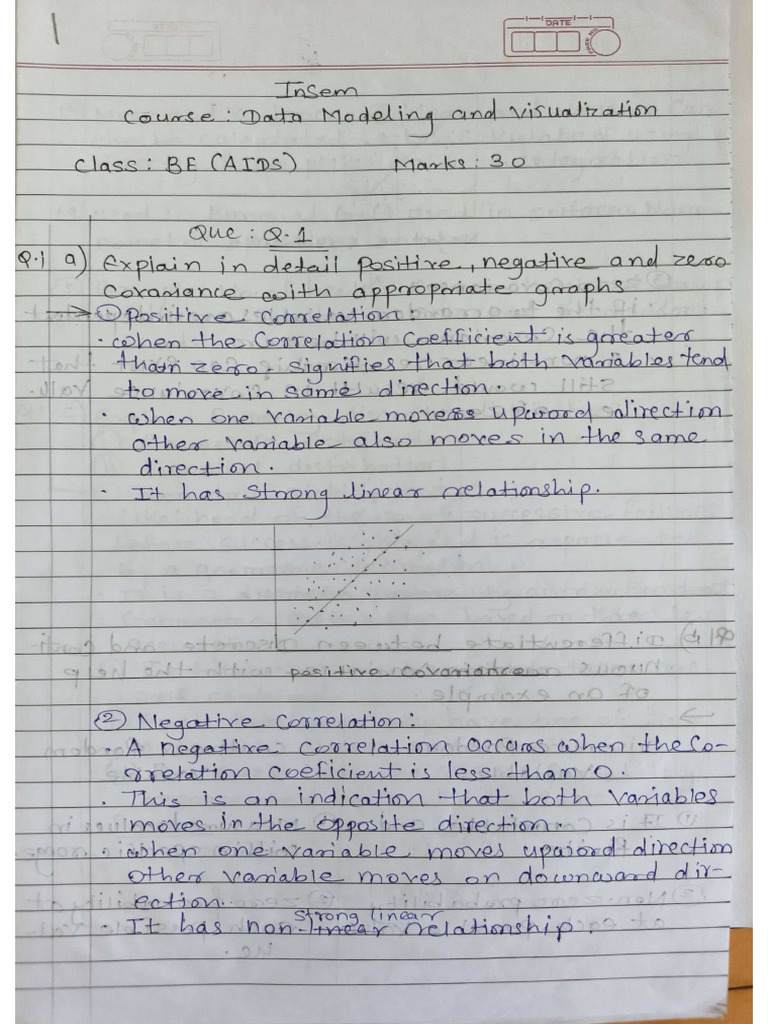 1
DATE
InSem
Course : Data Modeling and Visualization
Class : BE (AIDS) Marks : 30
Que : Q.1
Q.1 a) Explain in detail positive, negative and zero
Covariance with appropriate graphs
→ ① Positive Correlation :
· When the Correlation Coefficient is greater
than zero. Signifies that both Variables tend
to move in same direction.
· When one Variable moves upword direction
other variable also moves in the same
direction.
· It has Strong linear relationship.
positive covariance
② Negative Correlation :
· A negative Correlation occurs when the Co-
rrelation coeficient is less than 0.
· This is an indication that both Variables
moves in the opposite direction.
· When one variable moves upword direction
other variable moves on downward dir-
ection.
strong linear
· It has non-linear relationship.